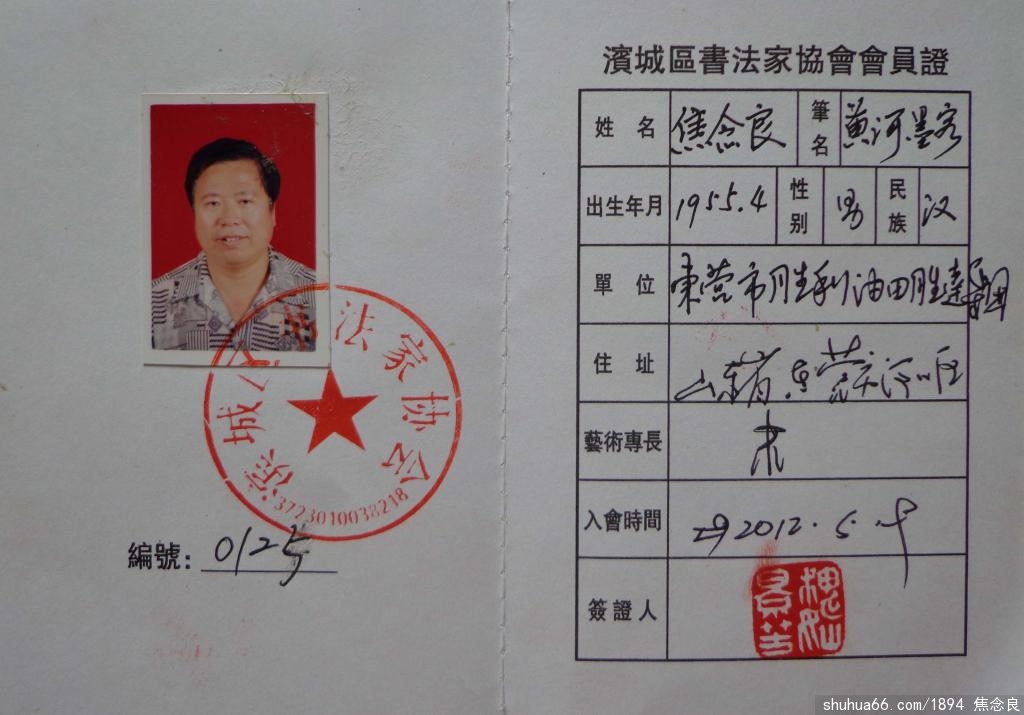 濱城區書法家協會會員證
姓 名 焦念良 筆名 黄河墨客
出生年月 1955.4 性别 男 民族 汉
單 位 東营市胜利油田胜達集团
住 址 山东省东营市河口区
藝術專長
入會時間 2012.5.
簽證人
滨城区书法家协会
3723010038218
編號: 0125
shuhua66.com/1894 焦念良